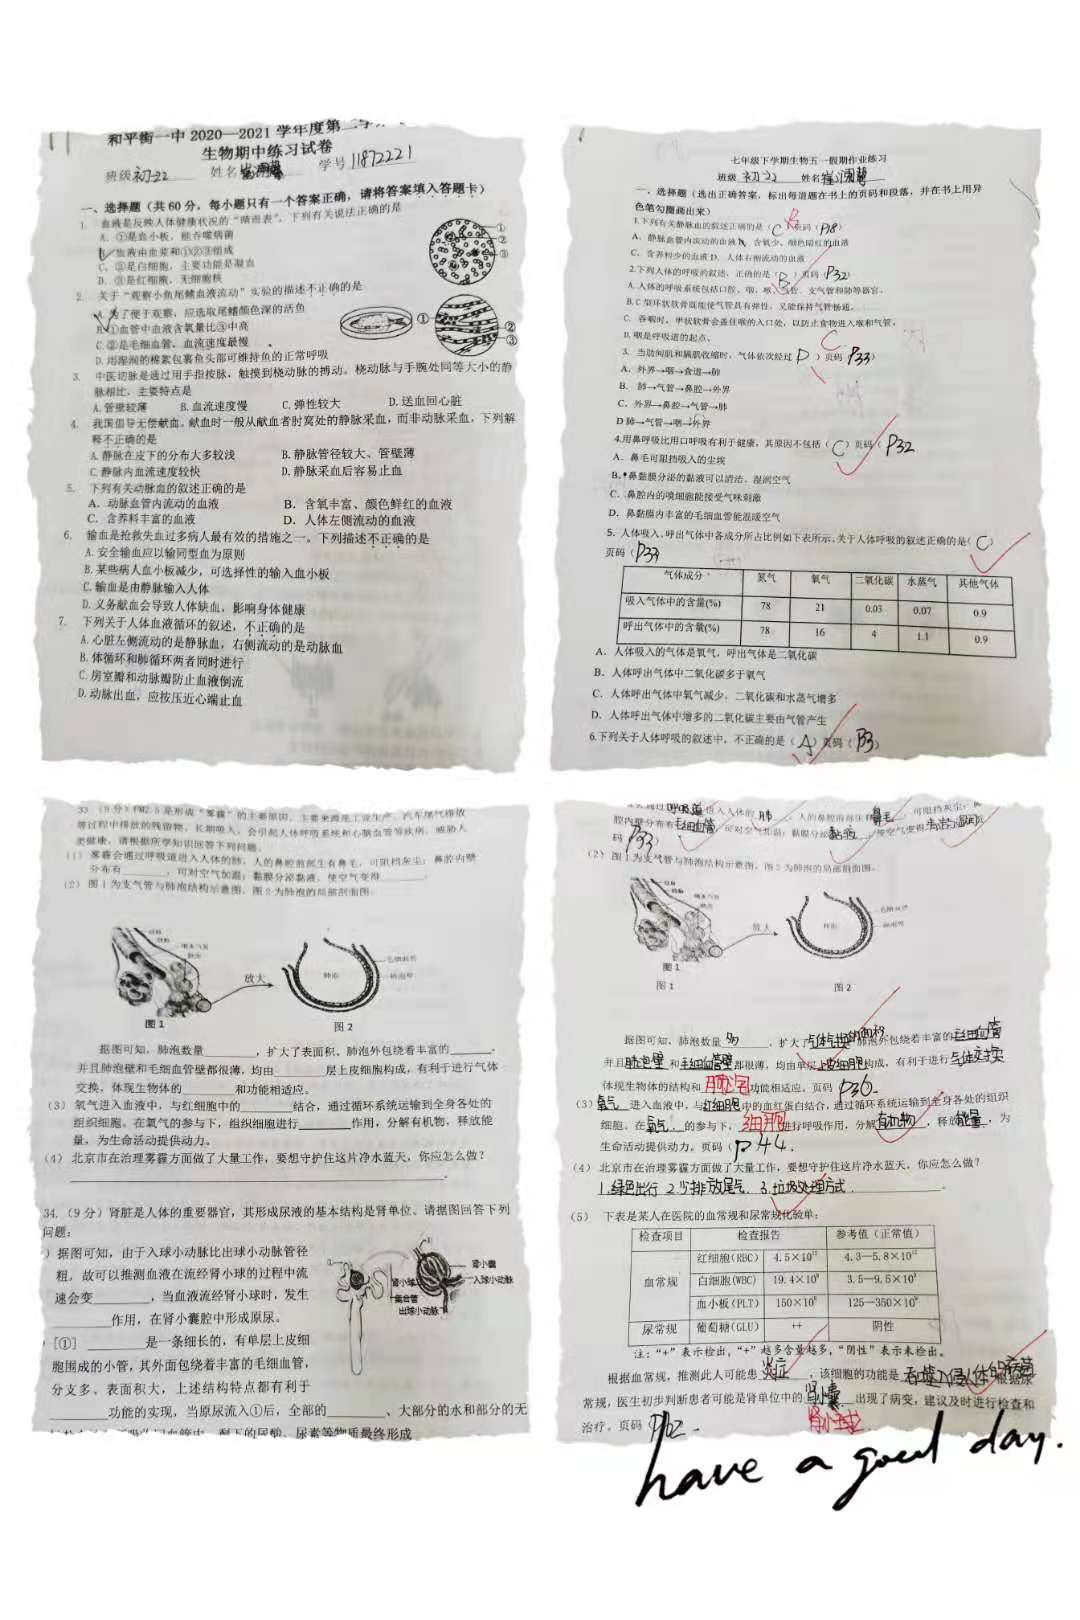 和平街一中 2020—2021 学年度第二学期
生物期中练习试卷
班级 初22 姓名 学号 11872221
一、选择题（共 60 分，每小题只有一个答案正确，请将答案填入答题卡）
1. 血液是反映人体健康状况的“晴雨表”。下列有关说法正确的是
A. ①是血小板，能吞噬病菌
B. 血液由血浆和①②③组成
C. ②是白细胞，主要功能是凝血
D. ③是红细胞，无细胞核
①
②
③
2. 关于“观察小鱼尾鳍血液流动”实验的描述不正确的是
A. 为了便于观察，应选取尾鳍颜色深的活鱼
B. ①血管中血液含氧量比③中高
C. ②是毛细血管，血流速度最慢
D. 用湿润的棉絮包裹鱼头部可维持鱼的正常呼吸
①
②
③
3. 中医切脉是通过用手指按脉，触摸到桡动脉的搏动。桡动脉与手腕处同等大小的静
脉相比，主要特点是
A. 管壁较薄 B. 血流速度慢 C. 弹性较大 D. 送血回心脏
4. 我国倡导无偿献血。献血时一般从献血者肘窝处的静脉采血，而非动脉采血，下列解
释不正确的是
A. 静脉在皮下的分布大多较浅 B. 静脉管径较大、管壁薄
C. 静脉内血流速度较快 D. 静脉采血后容易止血
5. 下列有关动脉血的叙述正确的是
A. 动脉血管内流动的血液 B. 含氧丰富、颜色鲜红的血液
C. 含养料丰富的血液 D. 人体左侧流动的血液
6. 输血是抢救失血过多病人最有效的措施之一。下列描述不正确的是
A. 安全输血应以输同型血为原则
B. 某些病人血小板减少，可选择性的输入血小板
C. 输血是由静脉输入人体
D. 义务献血会导致人体缺血，影响身体健康
7. 下列关于人体血液循环的叙述，不正确的是
A. 心脏左侧流动的是静脉血，右侧流动的是动脉血
B. 体循环和肺循环两者同时进行
C. 房室瓣和动脉瓣防止血液倒流
D. 动脉出血，应按压近心端止血
七年级下学期生物五一假期作业练习
班级 初22 姓名
一、选择题（选出正确答案，标出每道题在书上的页码和段落，并在书上用异
色笔勾圈画出来）
1.下列有关静脉血的叙述正确的是（ C B 页码（P18）
A、静脉血管内流动的血液 B、含氧少、颜色暗红的血液
C、含养料少的血液 D、人体右侧流动的血液
2.下列人体的呼吸的叙述，正确的是（ B ）页码（P32）
A.人体的呼吸系统包括口腔、咽、喉、气管、支气管和肺等器官。
B.C 型环状软骨既能使气管具有弹性，又能保持气管畅通。
C. 吞咽时，甲状软骨会盖住喉的入口处，以防止食物进入喉和气管。
D.咽是呼吸道的起点。
3. 当肋间肌和膈肌收缩时，气体依次经过 D C ）页码（P33）
A、外界→咽→食道→肺
B、肺→气管→鼻腔→外界
C、外界→鼻腔→气管→肺
D 肺→气管→咽→外界
4.用鼻呼吸比用口呼吸有利于健康，其原因不包括（ C ）页码（ P32
A、鼻毛可阻挡吸入的尘埃
B、鼻黏膜分泌的黏液可以清洁、湿润空气
C、鼻腔内的嗅细胞能接受气味刺激
D、鼻黏膜内丰富的毛细血管能温暖空气
5. 人体吸入、呼出气体中各成分所占比例如下表所示。关于人体呼吸的叙述正确的是（ C ）
页码（P33
气体成分 氮气 氧气 二氧化碳 水蒸气 其他气体
吸入气体中的含量(%) 78 21 0.03 0.07 0.9
呼出气体中的含量(%) 78 16 4 1.1 0.9
A、人体吸入的气体是氧气，呼出气体是二氧化碳
B、人体呼出气体中二氧化碳多于氧气
C、人体呼出气体中氧气减少，二氧化碳和水蒸气增多
D、人体呼出气体中增多的二氧化碳主要由气管产生
6.下列关于人体呼吸的叙述中，不正确的是（ A ）页码（ P33 ）
33.（9 分）PM2.5 是形成“雾霾”的主要原因，主要来源是工业生产、汽车尾气排放
等过程中排放的残留物，长期吸入，会引起人体呼吸系统和心脑血管等疾病，威胁人
类健康。请根据所学知识回答下列问题。
（1）雾霾会通过呼吸道进入人体的肺。人的鼻腔前部生有鼻毛，可阻挡灰尘；鼻腔内壁
分布有______，可对空气加温；黏膜分泌黏液，使空气变得______。
（2）图 1 为支气管与肺泡结构示意图，图 2 为肺泡的局部剖面图。
放大
肺泡
图 1
图 2
据图可知，肺泡数量______，扩大了表面积，肺泡外包绕着丰富的______。
并且肺泡壁和毛细血管壁都很薄，均由______层上皮细胞构成，有利于进行气体
交换，体现生物体的______和功能相适应。
（3）氧气进入血液中，与红细胞中的______结合，通过循环系统运输到全身各处的
组织细胞。在氧气的参与下，组织细胞进行______作用，分解有机物，释放能
量，为生命活动提供动力。
（4）北京市在治理雾霾方面做了大量工作，要想守护住这片净水蓝天，你应怎么做？
34.（9 分）肾脏是人体的重要器官，其形成尿液的基本结构是肾单位。请据图回答下列
问题：
）据图可知，由于入球小动脉比出球小动脉管径
粗，故可以推测血液在流经肾小球的过程中流
速会变______，当血液流经肾小球时，发生
______作用，在肾小囊腔中形成原尿。
[①]______是一条细长的，有单层上皮细
胞围成的小管，其外面包绕着丰富的毛细血管，
分支多、表面积大，上述结构特点都有利于
______功能的实现，当原尿流入①后，全部的______、大部分的水和部分的无
肾小囊
肾小球
入球小动脉
集合管
出球小动脉
呼吸道进入人体的 肺 。人的鼻腔前部生 鼻毛 ，可阻挡灰尘；鼻
腔内壁分布有毛细血管，可对空气加温；黏膜分泌 黏液 ，使空气变得
码（P33）
（2）图 1 为支气管与肺泡结构示意图，图 2 为肺泡的局部剖面图。
放大
肺泡
图 1
图 1
图 2
据图可知，肺泡数量 多 ，扩大了气体交换的面积，肺泡外包绕着丰富的毛细血管
并且肺泡壁 和毛细血管壁都很薄，均由单层上皮细胞构成，有利于进行气体交换
体现生物体的结构和 肺泡 功能相适应。页码 P36
（3）氧气 进入血液中，与红细胞中的血红蛋白结合，通过循环系统运输到全身各处的组织
细胞。在氧气 的参与下，细胞进行呼吸作用，分解有机物 ，释放能量 ，为
生命活动提供动力。页码（P44.
（4）北京市在治理雾霾方面做了大量工作，要想守护住这片净水蓝天，你应怎么做？
1.绿色出行 2.少排放尾气. 3.垃圾处理方式.
（5） 下表是某人在医院的血常规和尿常规化验单：
检查项目 检查报告 参考值（正常值）
血常规 红细胞(RBC) 4.5×10¹² 4.3—5.8×10¹²
白细胞(WBC) 19.4×10⁹ 3.5—9.5×10⁹
血小板(PLT) 150×10⁹ 125—350×10⁹
尿常规 葡萄糖(GLU) ++ 阴性
注：“+”表示检出，“+”越多含量越多，“阴性”表示未检出。
根据血常规，推测此人可能患 炎症 ，该细胞的功能是 吞噬入侵人体的病菌 根据尿
常规，医生初步判断患者可能是肾单位中的 肾小囊 出现了病变，建议及时进行检查和
肾小球
治疗。页码 P62
have a good day.